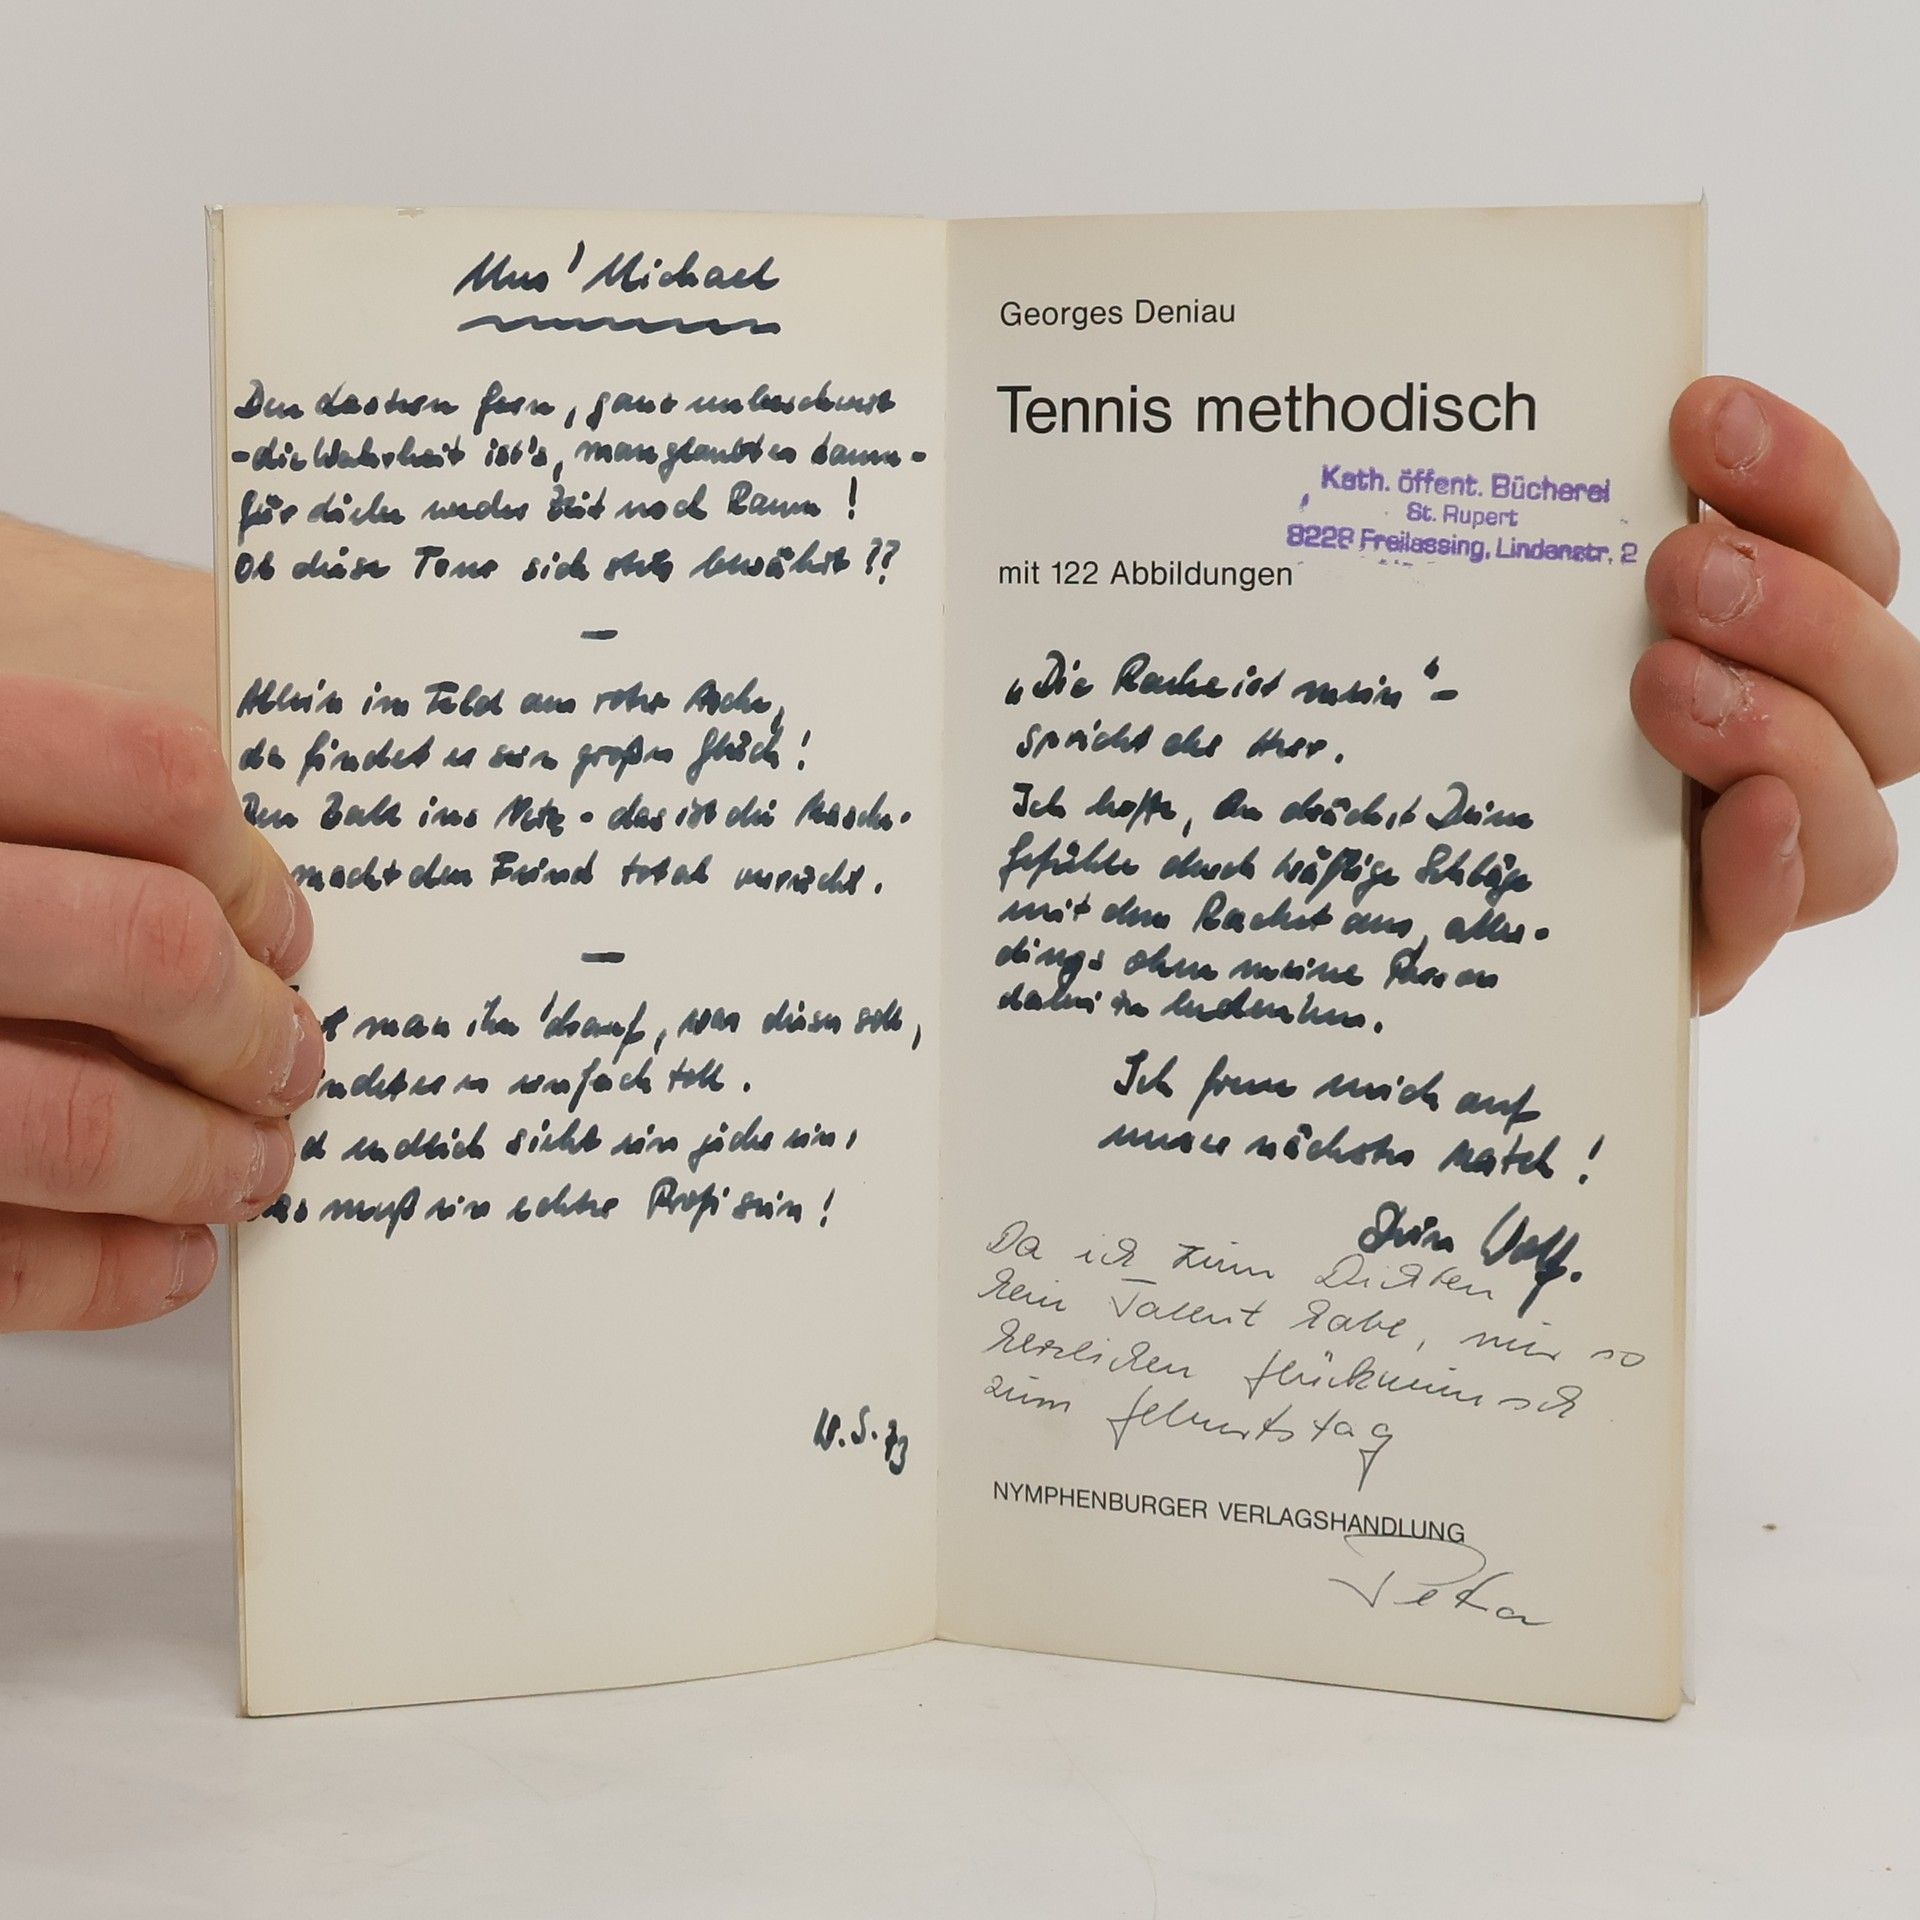 Uns' Michael
ganz
- die Wahrheit ist's, man glaubt es kaum -
für weder Zeit noch Raum !
Ob dieser Tenn sich stets bewährt ??
—
Allein im Feld aus roter Asche,
da findet er sein großes Glück !
Den Ball ins Netz - das ist die Masche -
macht den Feind total verrückt .
—
man ihn 'drauf, was dieses soll,
indet er es einfach toll .
d endlich sieht ein jeder ein,
as muß ein echter Profi sein !
73
Georges Deniau
Tennis methodisch
Kath. öffent. Bücherei
St. Rupert
8228 Freilassing, Lindenstr. 2
mit 122 Abbildungen
„Die Rache ist mein" -
spricht der Herr.
Ich hoffe, Du drückst Deine
Gefühle durch kräftige Schläge
mit dem Racket aus, aller-
dings ohne meine Person
dabei zu
Ich freue mich auf
unser nächstes Match !
Dein Wolf.
Da ich zum Dichten
kein Talent habe, nur so
herzlichen Glückwunsch
zum Geburtstag
NYMPHENBURGER VERLAGSHANDLUNG
Peter